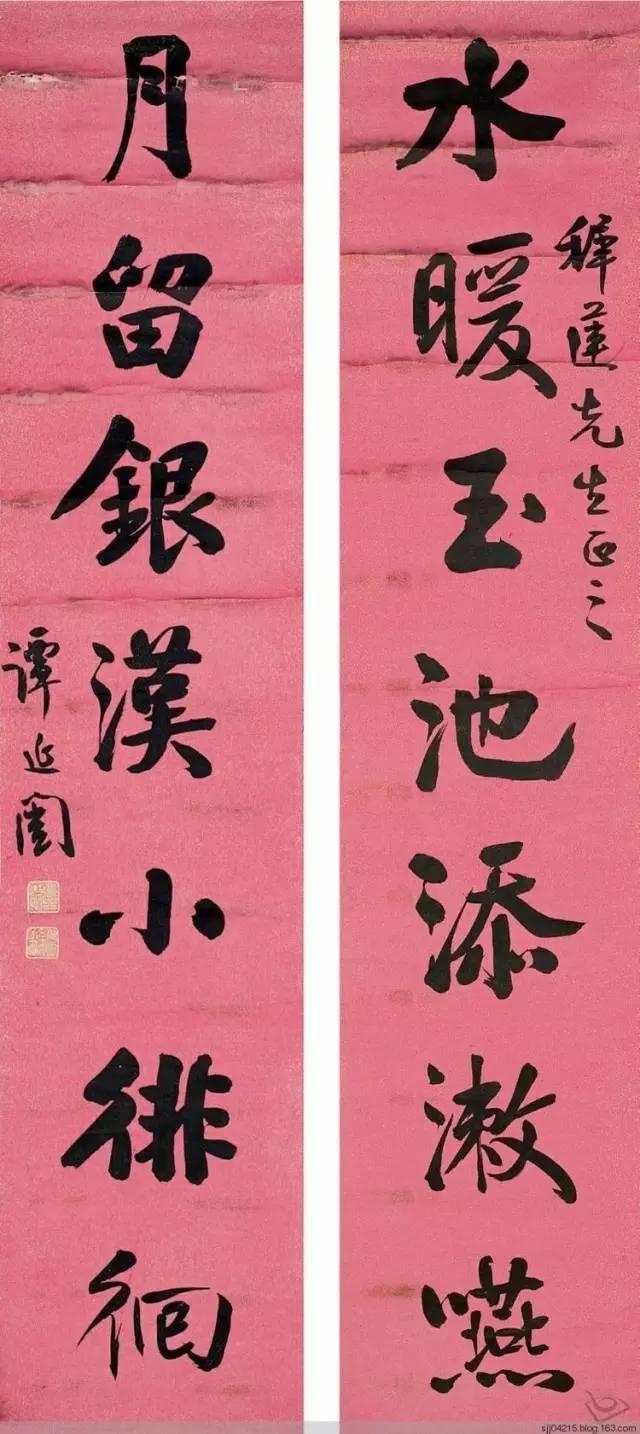 水暖玉池添漱嚥
穉蓮先生正之
月留銀漢小徘徊
譚延闓
sjj04215.blog.163.com